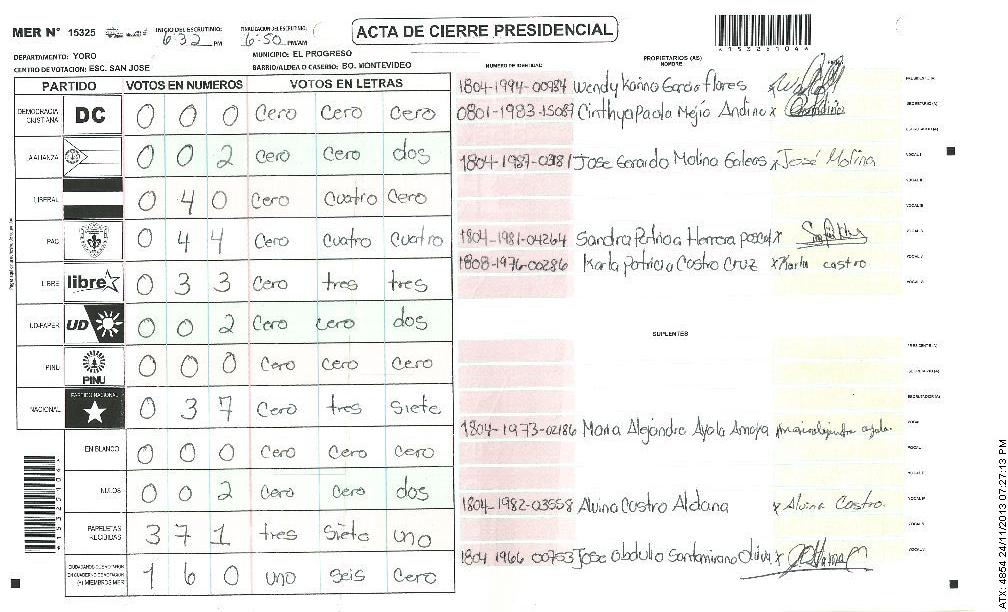 MER N° 15325 INICIO DEL ESCRUTINIO: 6:32 PM FINALIZACION DEL ESCRUTINIO: 6:50 PM/AM
ACTA DE CIERRE PRESIDENCIAL
DEPARTAMENTO: YORO MUNICIPIO: EL PROGRESO
CENTRO DE VOTACION: ESC. SAN JOSE BARRIO/ALDEA O CASERIO: BO. MONTEVIDEO
NUMERO DE IDENTIDAD PROPIETARIOS (AS) NOMBRE
PARTIDO VOTOS EN NUMEROS VOTOS EN LETRAS
DEMOCRACIA CRISTIANA DC 0 0 0 Cero Cero Cero
ALIANZA 0 0 2 Cero Cero dos
LIBERAL 0 4 0 Cero Cuatro Cero
PAC 0 4 4 Cero Cuatro Cuatro
LIBRE libre 0 3 3 Cero tres tres
UD-FAPER UD 0 0 2 Cero Cero dos
PINU PINU 0 0 0 Cero Cero Cero
NACIONAL PARTIDO NACIONAL 0 3 7 Cero tres Siete
EN BLANCO 0 0 0 Cero Cero Cero
NULOS 0 0 2 Cero Cero dos
PAPELETAS RECIBIDAS 3 7 1 tres Siete uno
1 6 0 uno seis Cero
1804-1994-00984 Wendy Karina Garcia Flores
0801-1983-15087 Cinthya Paola Mejia Andino x
1804-1987-0381 Jose Gerardo Molina Galeas x José Molina
1804-1981-04264 Sandra Patricia Herrera x
1808-1976-00286 Karla Patricia Castro Cruz x Karla castro
SUPLENTES
1804-1973-02186 Maria Alejandra Ayala Amaya
1804-1982-03558 Alvina Castro Aldana x Alvina Castro.
1804 1966 00753 Jose Abdulio Santamaria x
ATX: 4854 24/11/2013 07:27:13 PM